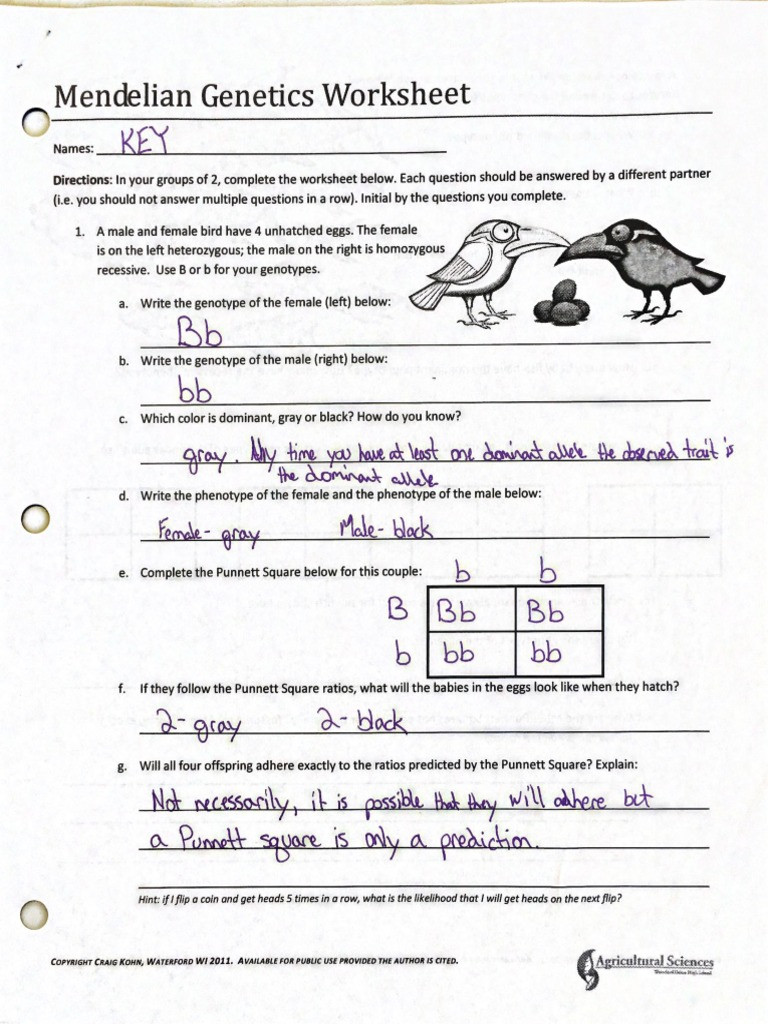 Mendelian Genetics Worksheet
Names: KEY
Directions: In your groups of 2, complete the worksheet below. Each question should be answered by a different partner
(i.e. you should not answer multiple questions in a row). Initial by the questions you complete.
1. A male and female bird have 4 unhatched eggs. The female
is on the left heterozygous; the male on the right is homozygous
recessive. Use B or b for your genotypes.
a. Write the genotype of the female (left) below:
Bb
b. Write the genotype of the male (right) below:
bb
c. Which color is dominant, gray or black? How do you know?
gray. Any time you have at least one dominant allele the observed trait is
the dominant allele
d. Write the phenotype of the female and the phenotype of the male below:
Female- gray Male- black
e. Complete the Punnett Square below for this couple:
b b
B Bb Bb
b bb bb
f. If they follow the Punnett Square ratios, what will the babies in the eggs look like when they hatch?
2- gray 2- black
g. Will all four offspring adhere exactly to the ratios predicted by the Punnett Square? Explain:
Not necessarily, it is possible that they will adhere but
a Punnett square is only a prediction.
Hint: if I flip a coin and get heads 5 times in a row, what is the likelihood that I will get heads on the next flip?
COPYRIGHT CRAIG KOHN, WATERFORD WI 2011. AVAILABLE FOR PUBLIC USE PROVIDED THE AUTHOR IS CITED.
Agricultural Sciences
Waterford Union High School